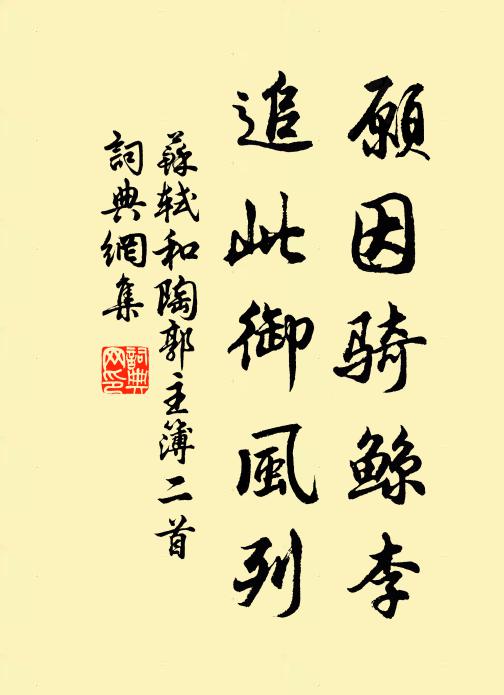 願因骑鲸李
追此御風列
蘇軾和陶郭主簿二首
詞典網集
詞典网印